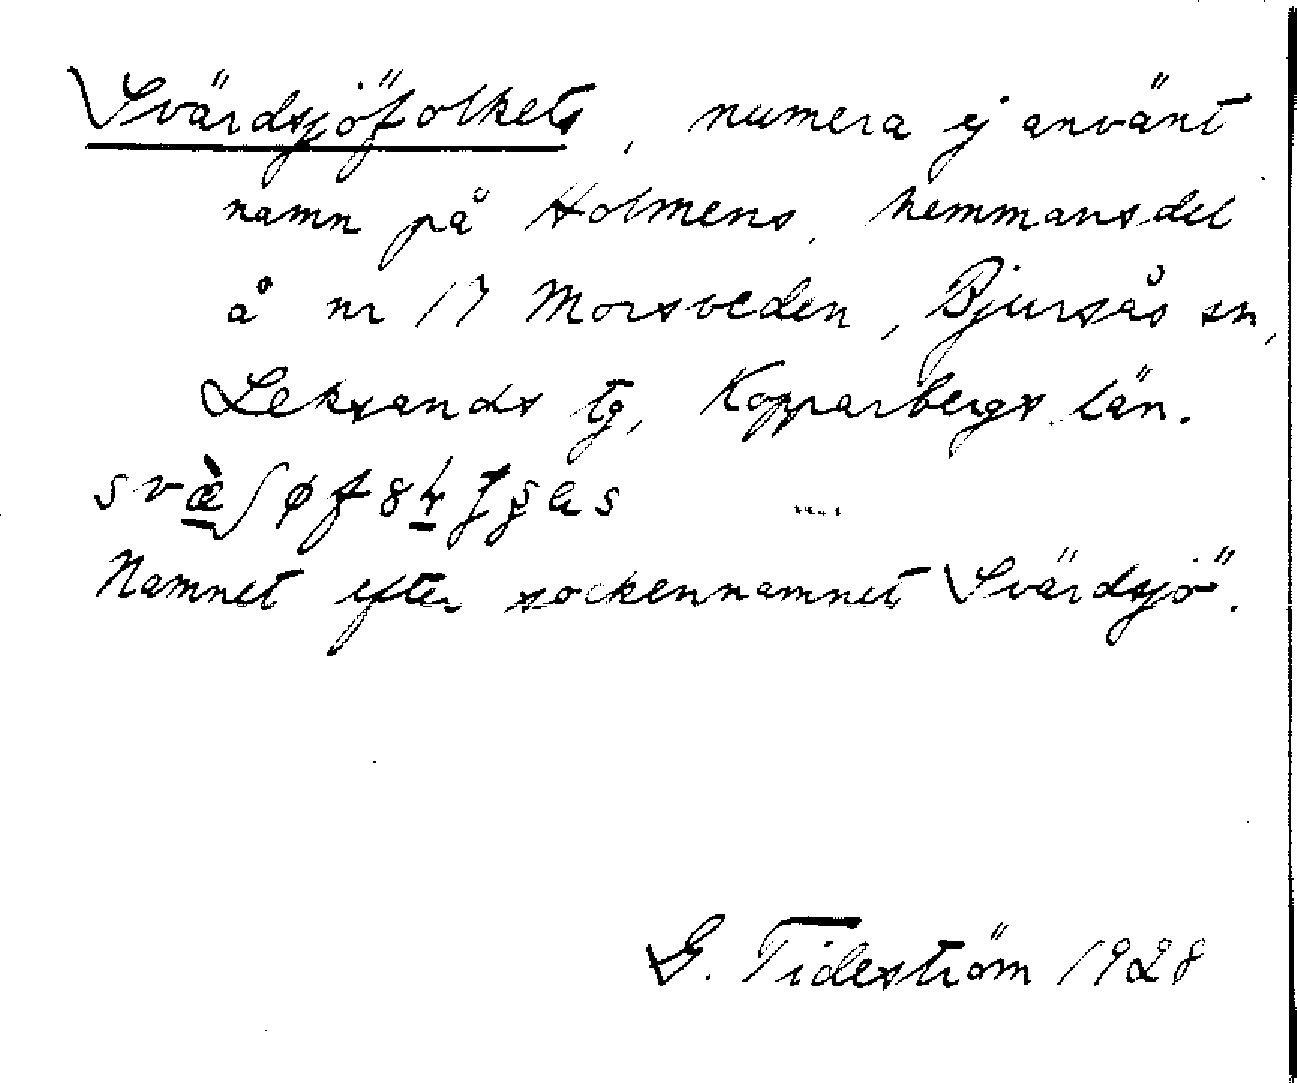 Svärdsjöfolkets, numera ej använt
namn på Holmens, hemmansdel
å nr 17 Morsveden, Bjursås sn,
Leksands tg, Kopparbergs län.
Namnet efter sockennamnet Svärdsjö.
G. Tideström 1928